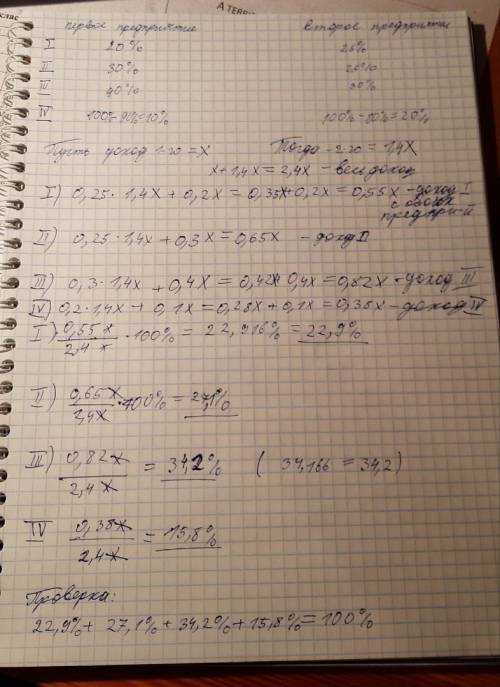 клас
A TERRI
первое предприятие второе предприятие
I 20% 25%
II 30% 25%
III 40% 30%
IV 100%-90%=10% 100%-80%=20%
Пусть доход 1-го =x Тогда -2-го = 1,4x
x+1,4x=2,4x - весь доход
I) 0,25·1,4x+0,2x=0,35x+0,2x=0,55x -доход I
с обоих
предпр-й
II) 0,25·1,4x+0,3x=0,65x - доход II
III) 0,3·1,4x+0,4x=0,42x 0,4x=0,82x -доход III
IV) 0,2·1,4x+0,1x=0,28x+0,1x=0,38x-доход IV
I) 0,55x/2,4x ·100%=22,916%=22,9%
II) 0,65x/2,4x ·100%=27,1%
III) 0,82x/2,4x = 34,2% ( 34,166 = 34,2)
IV 0,38x/2,4x = 15,8%
Проверка:
22,9%+ 27,1%+34,2%+15,8%=100%